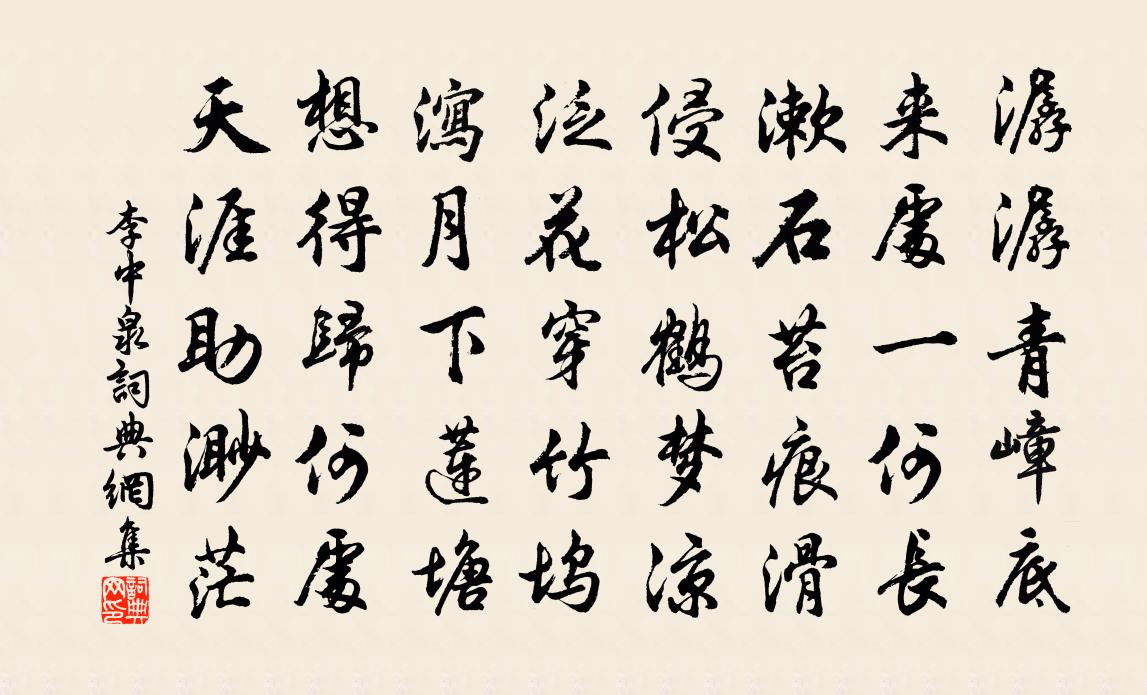 潺潺青嶂底
来處一何長
漱石苔痕滑
侵松鶴梦凉
泛花穿竹坞
瀉月下蓮塘
想得歸何處
天涯助渺茫
李中泉詞典網集
詞典网印